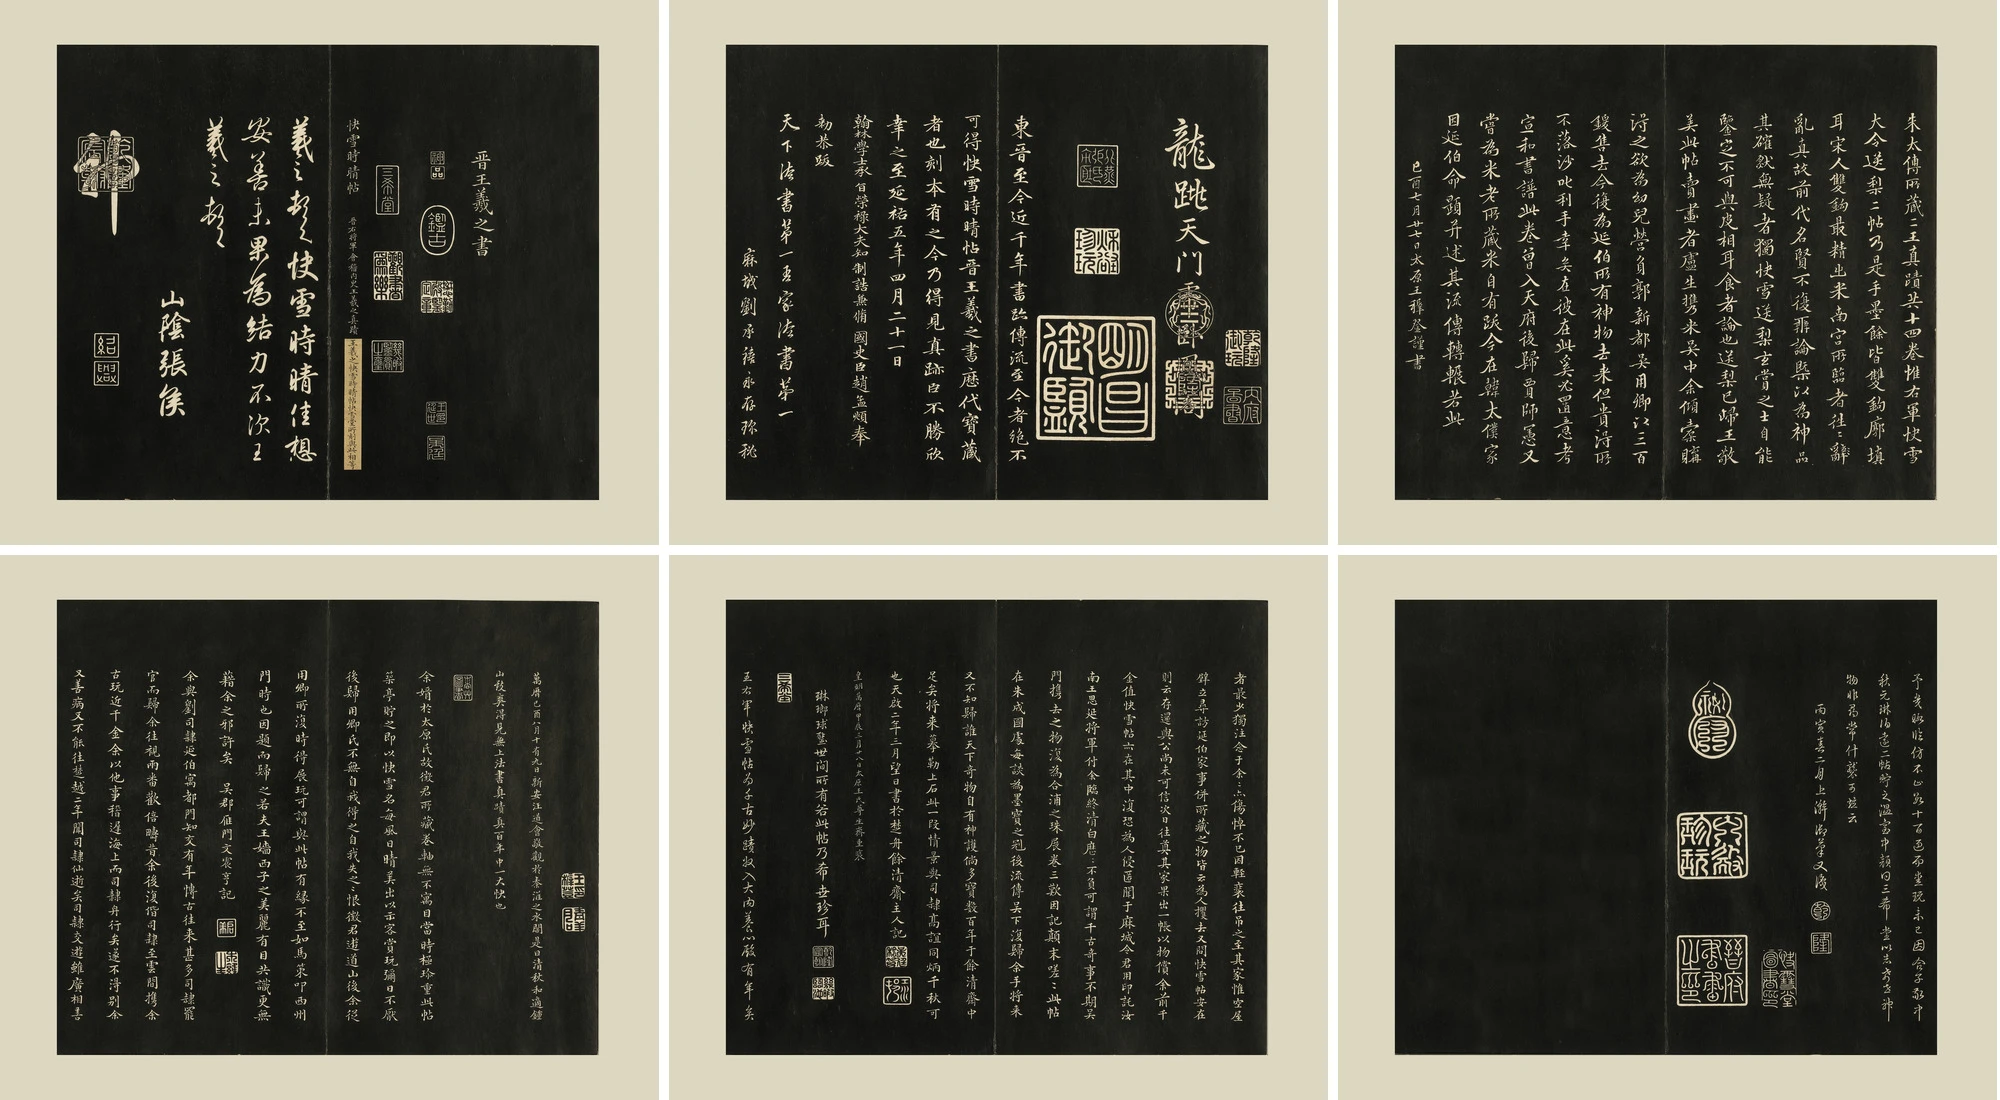 晋王羲之書
神品
鑑古
三希堂
快雪時晴帖
晉右将軍會稽内史王羲之真蹟
羲之頓首快雪時晴佳想
安善未果為結力不次王
羲之頓首
山陰張侯
紹興
龍跳天門虎卧鳳閣
乾隆御玩
明昌御覽
東晋至今近千年書跡傳流至今者絶不
可得快雪時晴帖晋王羲之書歷代寶藏
者也刻本有之今乃得見真跡臣不勝欣
幸之至延祐五年四月二十一日
翰林學士承旨榮祿大夫知制誥兼脩國史臣趙孟頫奉
勅恭跋
天下法書第一吾家法書第一
麻城劉承禧永存珎秘
朱太傅所藏二王真蹟共十四卷惟右軍快雪
大令送梨二帖乃是手墨餘皆雙鈎廓填
耳宋人雙鈎最精出米南宫所臨者往往
亂真故前代名賢不復辨論槩以為神品
其確然無疑者獨快雪送梨玄賞之士自能
鑒定不可與皮相耳食者論也送梨已歸王敬
美此帖賣畫者盧生携来吴中余傾橐購
得之欲為幼兒營負郭新都吴用卿以三百
鍰售去今復為延伯所有神物去来但貴得所
不落沙叱利手幸矣在彼在此奚必置意考
宣和書譜此卷曾入天府後歸賈師憲又
嘗為米老所藏米自有跋今在韓太僕家
因延伯命題并述其流傳轉輾若此
己酉七月廿七日太原王穉登謹書
萬曆己酉八月十有九日新安汪道會敬觀於秦淮之水閣是日清秋和適鍾
山致爽得見無上法書真蹟真百年中一大快也
余婿於太原氏故徵君所藏卷軸無不寓目當時極珎重此帖
築亭貯之即以快雪名每風日晴美出以示客賞玩彌日不厭
後歸用卿氏不無自我得之自我失之之恨徵君遊道山後余從
用卿所復時得展玩可謂與此帖有緣不至如馬策叩西州
門時也因題而歸之若夫王嬙西子之美麗有目共識更無
藉余之邪許矣 吴郡雁門文震亨記
余與劉司隸延伯寓都門知交有年博古往来甚多司隸罷
官而歸余往視兩番歡倍疇昔余後復偕司隸至雲間携余
古玩近千金余以他事稽遲海上而司隸舟行矣遂不得别余
又善病又不能往楚越二年聞司隸仙逝矣司隸交遊雖廣相善
者最少獨注念于余余亦傷悼不已因輕裝往吊之至其家惟空屋
壁立尋訪延伯家事併所藏之物皆云為人攫去又問快雪帖安在
則云存還與公尚未可信次日往奠其家果出一帳以物償余前千
金值快雪帖亦在其中復恐為人侵匿聞于麻城令君用印託汝
南王思延將軍付余臨終清白應不負可謂千古奇事不期吴
門携去之物復為合浦之珠展卷三歎因記顛末嗟嗟此帖
在朱成國處每談為墨寶之冠後流傳吴下復歸余手將来
又不知歸誰天下奇物自有神護倘多寶數百年于餘清齋中
足矣将来摹勒上石此一段情景與司隸高誼同炳千秋可
也天啟二年三月望日書於楚舟餘清齋主人記
琳瑯球璧世間所有若此帖乃希世珍耳
三希堂
王右軍快雪帖為千古妙蹟收入大内養心殿有年矣
予幾暇臨仿不止數十百過而愛玩未已因合子敬中
秋元琳伯遠二帖貯之温室中顔曰三希堂以志希世神
物非尋常什襲可並云
丙寅春二月上澣御筆又識
乾
隆
秘殿
晋府書畫之印